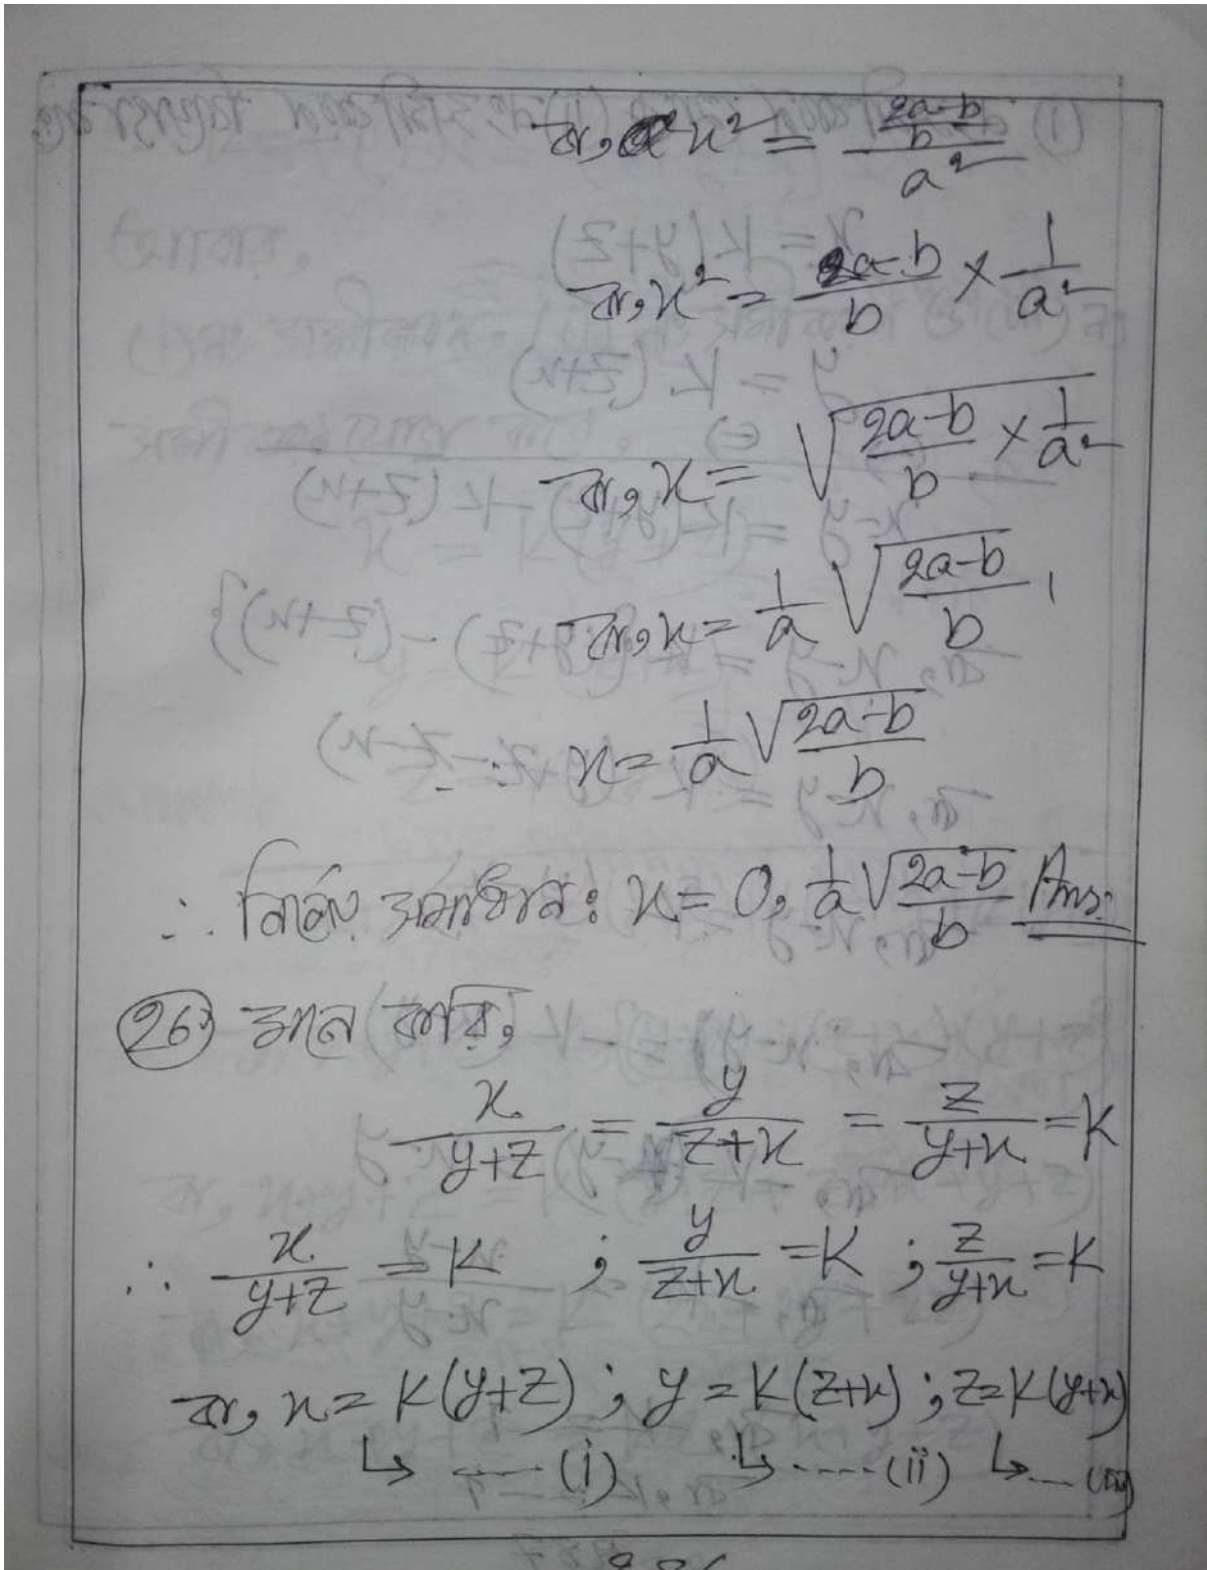 বা, x² = (2a-b)/b / a²
বা, x² = (2a-b)/b × 1/a²
বা, x = √((2a-b)/b × 1/a²)
বা, x = 1/a √((2a-b)/b) ।
∴ x = 1/a √((2a-b)/b)
∴ নির্ণেয় সমাধান: x = 0, 1/a √((2a-b)/b) Ans:
26) মনে করি,
x/(y+z) = y/(z+x) = z/(y+x) = K
∴ x/(y+z) = K ; y/(z+x) = K ; z/(y+x) = K
বা, x = K(y+z) ; y = K(z+x) ; z = K(y+x)
↳ ---- (i) ↳ ----- (ii) ↳ --- (iii)